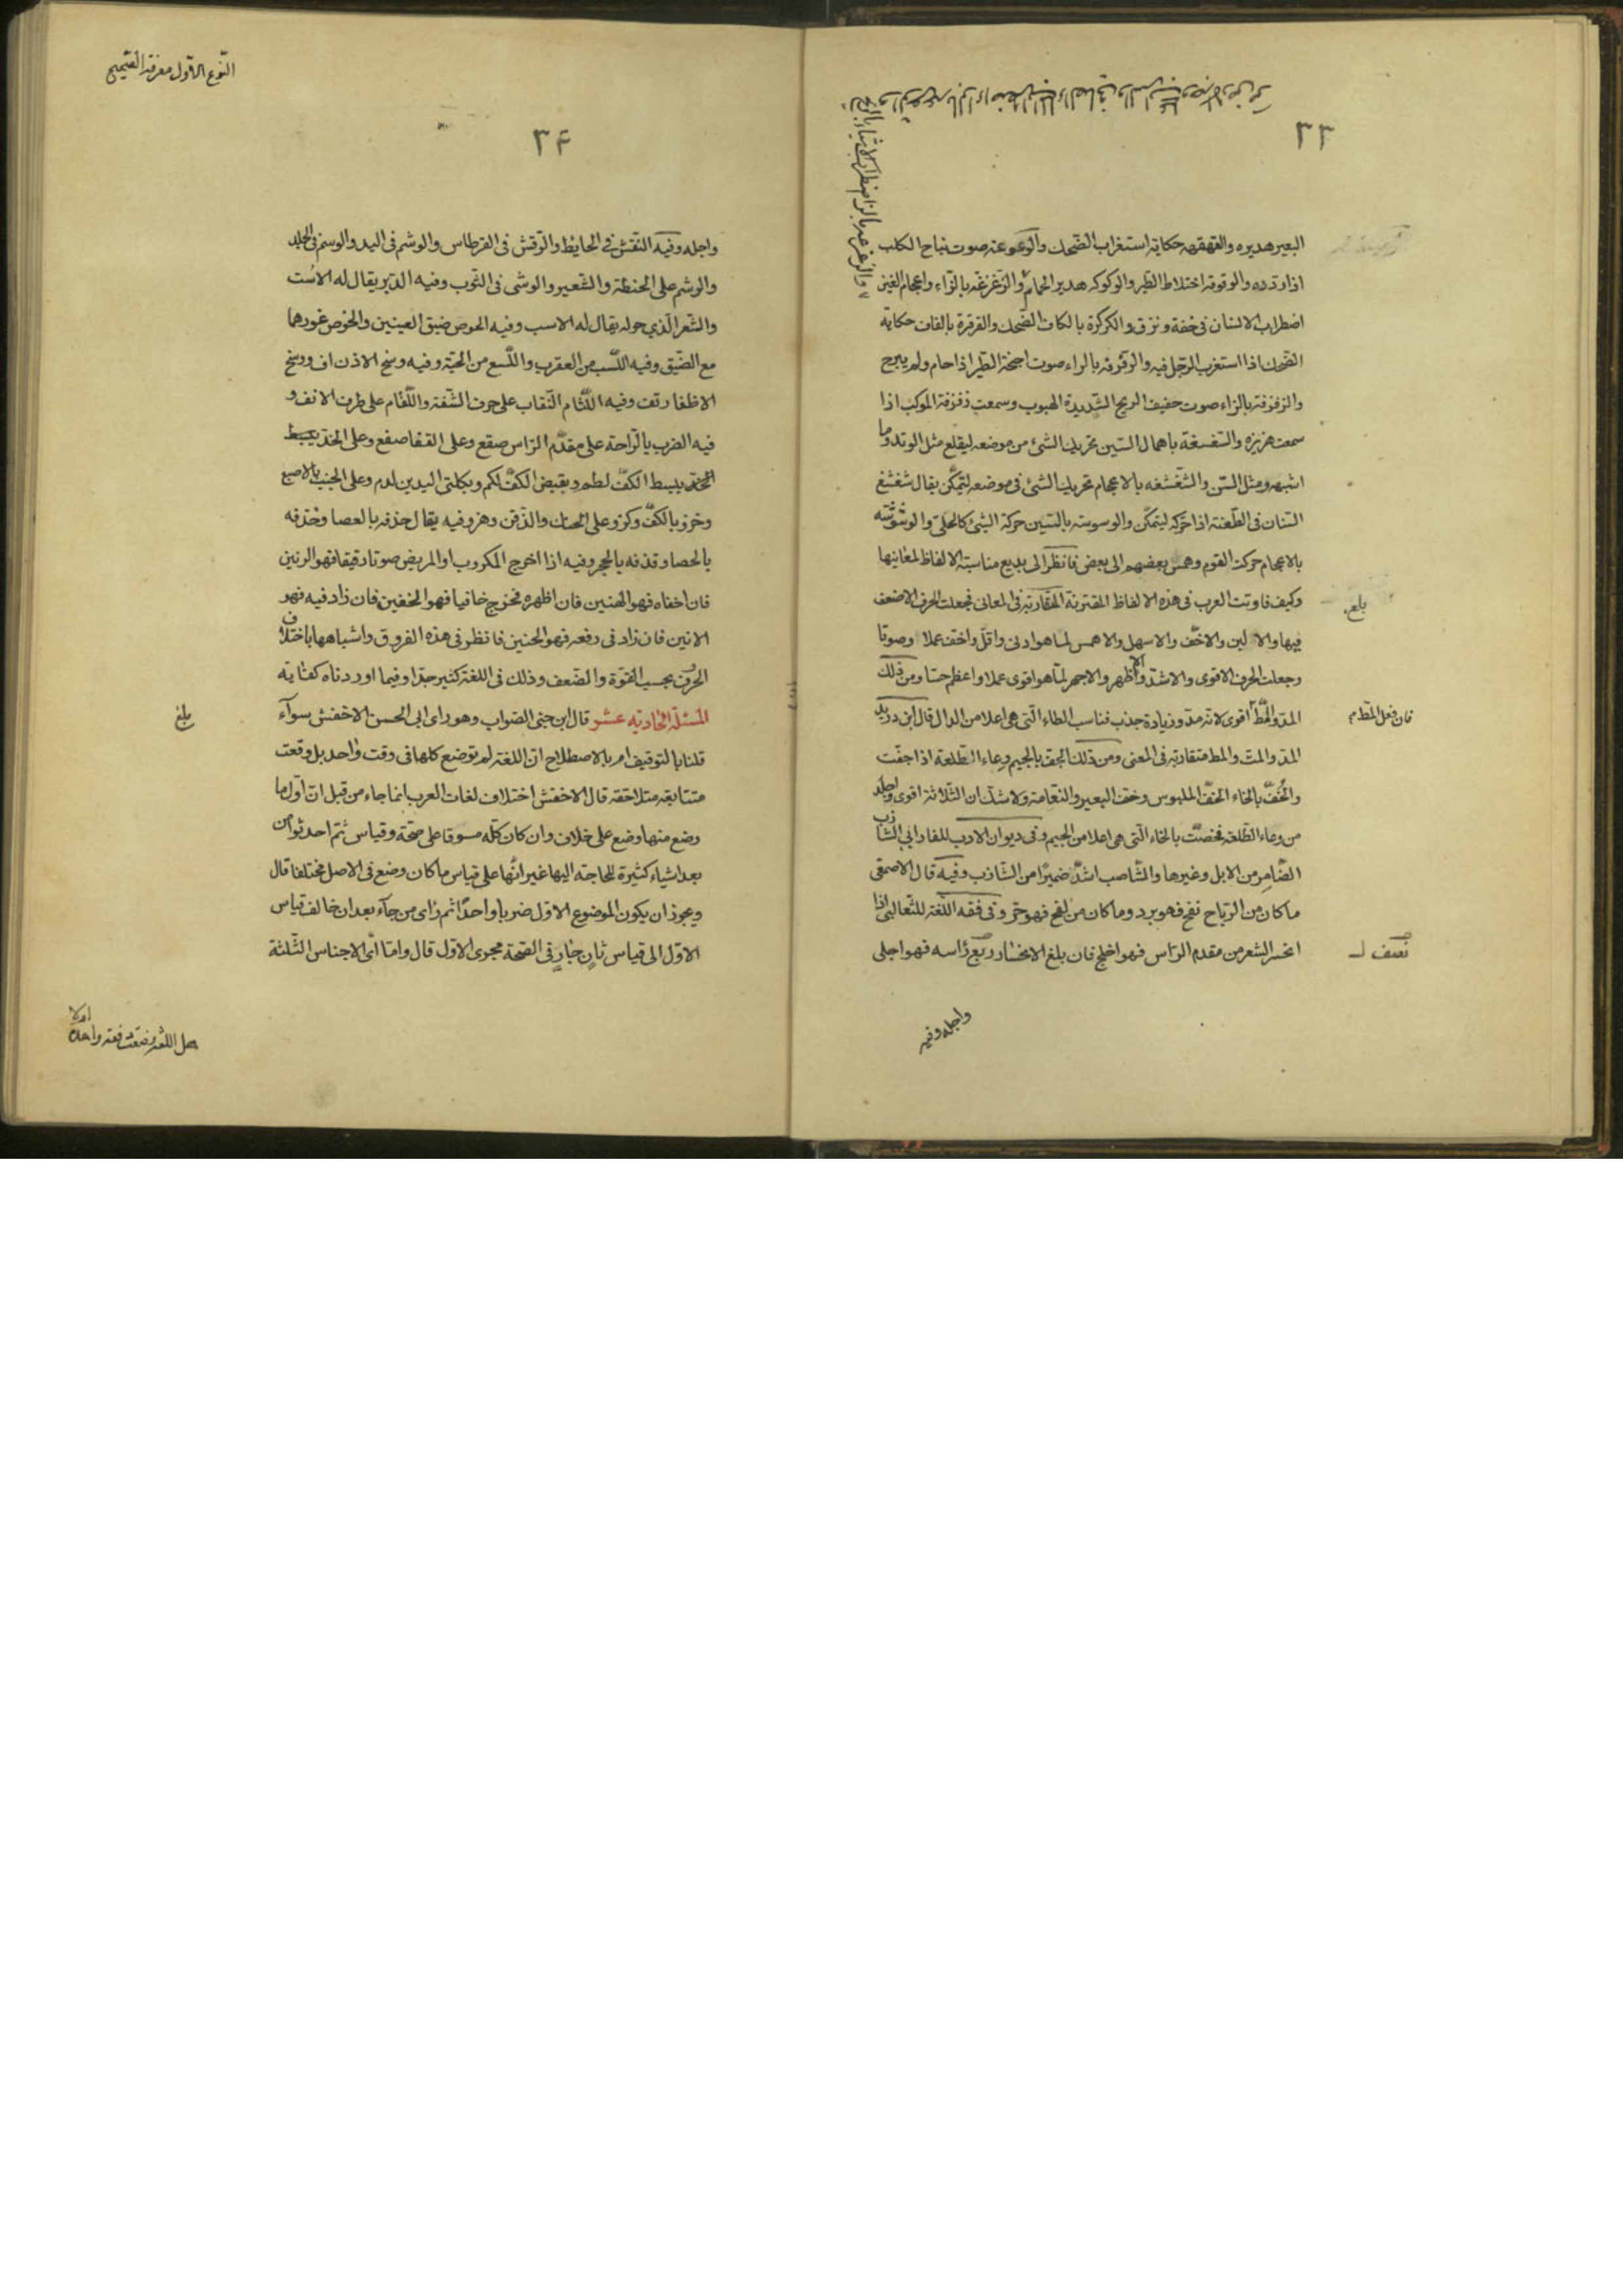 ٣٣
البعير هديره والقهقهه حكاية استغراب الضحك والوعوعه صوت نباح الكلب
اذا ردده والوقوقه اختلاط الطير والوكوكه هدير الحمام والزغزغه بالزاء واعجام الغين
اضطراب الانسان فى خفة ونزق والكركرة بالكاف الضحك والقرقرة بالقاف حكاية
الضحك اذا استغرب الرجل فيه والرفرفه بالراء صوت اجنحة الطير اذا حام ولم يبرح
والزفزفة بالزاء صوت حفيف الريح الشديدة الهبوب وسمعت زفزفة الموكب اذا
سمعت هزيزه والسغسغة باهمال السين تحريك الشئ من موضعه ليقلع مثل الوتد وما
اشبهه ومثل السن والشغشغه بالاعجام تحريك الشئ فى موضعه ليتمكن يقال شغشغ
السنان فى الطعنة اذا حركه ليتمكن والوسوسه بالسين حركة الشئ كالحلى والوشوشه
بالاعجام حركت القوم وهمس بعضهم الى بعض فانظر الى بديع مناسبة الالفاظ لمعانيها
وكيف فاوتت العرب فى هذه الالفاظ المقترنة المتقاربة فى المعانى فجعلت الحرف الاضعف
بلغ
فيها والالين والاخف والاسهل والاهمس لما هو ادنى واقل واخف عملا وصوتا
وجعلت الحرف الاقوى والاشد والاظهر والاجهر لما هو اقوى عملا واعظم حسا ومن ذلك
المد والمط اقوى لانه مد وزيادة جذب فناسب الطاء التى هى اعلا من الدال قال ابن دريد
فان فعل المط م
المد والمت والمط متقاربة فى المعنى ومن ذلك الجف بالجيم وعاء الطلعة اذا جفت
والخف بالخاء الخف الملبوس وخف البعير والنعامة ولا شك ان الثلاثة اقوى واجلد
من وعاء الطلعة فخصت بالخاء التى هى اعلا من الجيم وفى ديوان الادب للفارابى الشازب
الضامر من الابل وغيرها والشاصب اشد ضميرا من الشازب وفيه قال الاصمعى
ما كان من الرياح نفح فهو برد وما كان من لفح فهو حر وفى فقه اللغة للثعالبى اذا
انحسر الشعر من مقدم الراس فهو اجلح فان بلغ الانحسار ربع راسه فهو اجلى
نصف
واجله وفيه
النوع الاول معرفة الصحيح
٣٤
واجله وفيه النقش فى الحايط والرقش فى القرطاس والوشم فى اليد والوسم فى الجلد
والرشم على الحنطة والشعير والوشى فى الثوب وفيه الدبر يقال له الاست
والشعر الذي حوله يقال له الاسب وفيه الحوص ضيق العينين والخوص غورهما
مع الضيق وفيه اللسب من العقرب واللسع من الحية وفيه وسخ الاذن اف ووسخ
الاظفار تف وفيه اللثام النقاب على حرف الشفة واللفام على طرف الانف و
فيه الضرب بالراحة على مقدم الراس صقع وعلى القفا صفع وعلى الخد ببسط
الخد ببسط الكف لطم وبقبض الكف لكم وبكلتى اليدين لدم وعلى الجنب بالاصبع
وخز وبالكف وكز وعلى الحنك والذقن وهز وفيه يقال حذفه بالعصا وخذفه
بالحصا وقذفه بالحجر وفيه اذا اخرج المكروب او المريض صوتا رقيقا فهو الرنين
فان اخفاه فهو الهنين فان اظهره فخرج خافيا فهو الخنين فان زاد فيه فهو
الانين فان زاد فى رفعه فهو الحنين فانظر فى هذه الفروق واشباهها باختلاف
الحرف بحسب القوة والضعف وذلك فى اللغة كثير جدا وفيما اوردناه كفاية
المسئلة الحادية عشر قال ابن جنى الصواب وهو راى ابى الحسن الاخفش سواء
بلغ
قلنا بالتوقيف ام بالاصطلاح ان اللغة لم توضع كلها فى وقت واحد بل وقعت
متتابعه متلاحقه قال الاخفش اختلاف لغات العرب انما جاء من قبل ان اول ما
وضع منها وضع على خلاف وان كان كله مسوقا على صحة وقياس ثم احدثوا من
بعد اشياء كثيرة للحاجة اليها غير انها على قياس ما كان وضع فى الاصل مختلفا قال
ويجوز ان يكون الموضوع الاول ضربا واحدا ثم راى من جاء بعد ان خالف قياس
الاول الى قياس ثان جار فى الصحة مجرى الاول قال واما اى الاجناس الثلثة
هل اللغة وضعت دفعة واحدة
ام لا